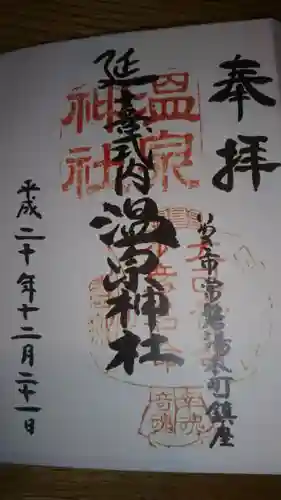 奉拝
いわき市常磐湯本町鎮座
延喜式内温泉神社
温泉
神社
平成二十年十二月二十一日
幸魂
奇魂